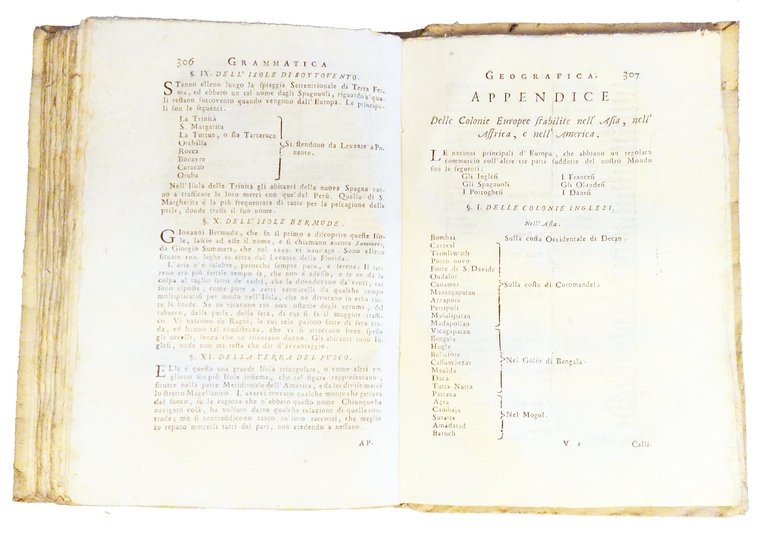 306 GRAMMATICA
§ IX. DELL' ISOLE DI SOTTOVENTO.
STanno elleno lungo la spiaggia Settentrionale di Terra Fer-
ma, ed ebbero un tal nome dagli Spagnuoli, riguardo a' qua-
li restano sottovento quando vengono dall' Europa. Le principa-
li son le seguenti.
La Trinità
S. Margarita
La Tortue, o sia Tartaruca
Orchilla
Rocca
Bonayre
Curacao
Oruba
Si stendono da Levante a Po-
nente.
Nell' Isola della Trinità gli abitanti della nuova Spagna van-
no a trafficare le loro merci con que' del Perù. Quella di S.
Margherita è la più frequentata di tutte per la pescagione delle
perle, donde trasse il suo nome.
§ X. DELL' ISOLE BERMUDE.
GIovanni Bermuda, che fu il primo a discoprire queste Iso-
le, lasciò ad esse il nome, e si chiamano ancora Summers,
da Giorgio Summers, che nel 1609. vi naufragò. Sono elleno
situate 100. leghe in circa dal Levante della Florida.
L'aria n'è salubre, perocchè sempre pura, e serena. Il ter-
reno era più fertile tempo fa, che non è adesso, e se ne dà la
colpa al taglio fatto de' cedri, che le difendevano da' venti, cui
sono esposte, come pure a certi vermicelli da qualche tempo
moltiplicatisi per modo nell' Isola, che ne divorano in erba tut-
te le biade. Se ne ricavano ciò non ostante degli agrumi, del
tabacco, delle perle, della seta, da cui si fa il maggior traffi-
co. Vi nascono de' Ragni, le cui tele paiono fatte da seta cre-
da, ed hanno tal consistenza, che vi si attaccano bene spesso
gli uccelli, senza che ne possano uscire. Gli abitanti sono In-
glesi, nude non me resta che dir d'avvantaggio.
§ XI. DELLA TERRA DEL FUOCO.
ELla è questa una grande Isola triangolare, o come altri vo-
gliono son più Isole insieme, che tal figura rappresentano,
situate nella parte Meridionale dell' America, e da lei divise mercè
lo stretto Magellanico. L'avervi trovato qualche monte che gettava
del fuoco, fu la cagione che n'ebbero questo nome. Chiunque ha
navigato colà, ha voluto darne qualche relazione di quelle con-
trade; ma si contraddicono tanto ne' loro racconti, che meglio
io reputo metterli tutti del pari, non credendo a nessuno.
AP-
GEOGRAFICA. 307
APPENDICE
Delle Colonie Europee stabilite nell' Asia, nell'
Affrica, e nell' America.
LE nazioni principali d' Europa, che abbiano un regolato
commercio coll' altre tre parti suddette del nostro Mondo
son le seguenti:
Gli Inglesi I Francesi
Gli Spagnuoli Gli Olandesi
I Portoghesi I Danesi
§. I. DELLE COLONIE INGLESI.
Nell' Asia.
Bombai Sulla costa Occidentale di Decan.
Carzeal
Tsimliwath
Porto novo
Forte di S. Davide
Ondalor
Cunamer
Maningapatan
Arrapore
Pettipoli
Malulspatan
Madapollan
Vicagapatan
Sulla costa di Coromandel.
Bengala
Hogly
Bellasore
Cassumbezar
Maulda
Daca
Tutta Nutta
Nel Golfo di Bengala.
Pattana
Agra
Cambaia
Suratte
Amadarad
Baroch
Nel Mogol.
V 2 Calli.